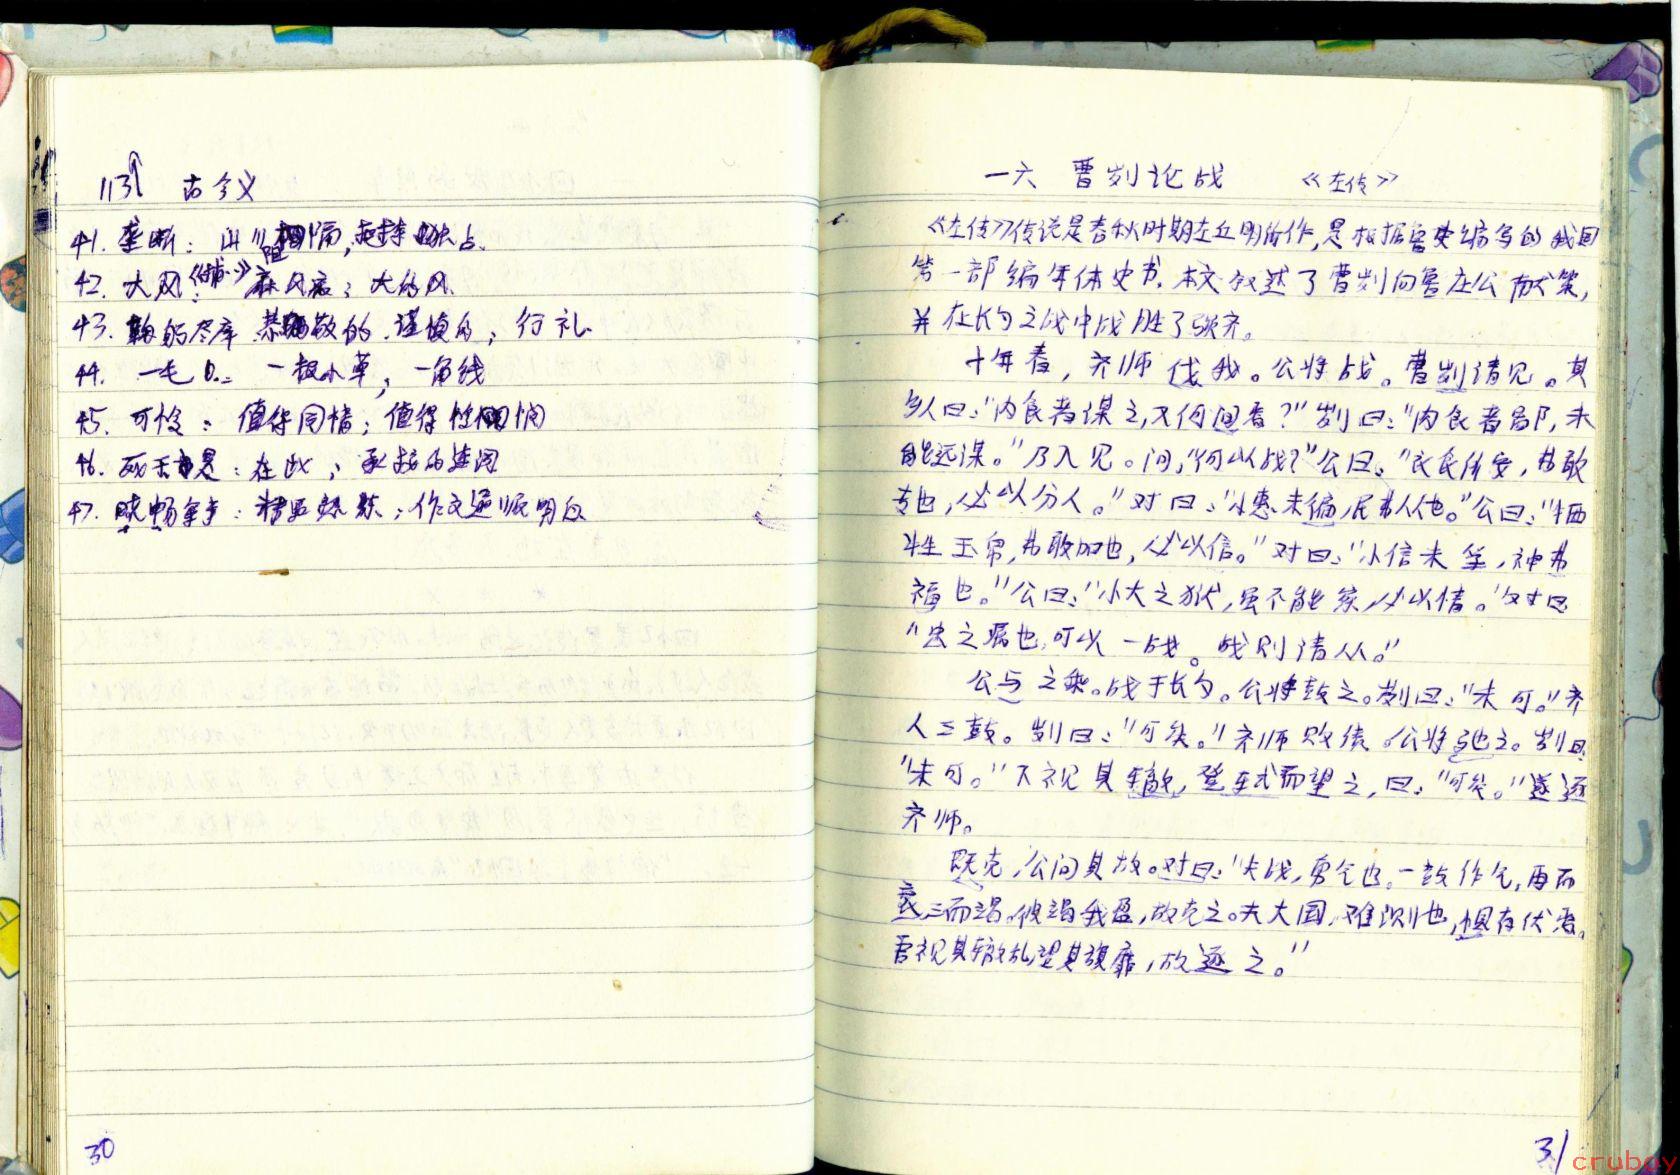 113个 古今义
41. 垄断：山川阻隔，把持独占.
42. 大风《捕…》：麻风病；大的风
43. 鞠躬尽瘁 恭敬的.谨慎的；行礼
44. 一毛 一根小草；一角钱
45. 可怜：值得同情；值得怜悯
46. 于是：在此；承接的连词
47. 晓畅军事：精通熟练；作文通顺明白
30
一六 曹刿论战 《左传》
《左传》传说是春秋时期左丘明所作，是根据鲁史编写的我国
第一部编年体史书.本文叙述了曹刿向鲁庄公献策，
并在长勺之战中战胜了强齐。
十年春，齐师伐我。公将战。曹刿请见。其
乡人曰："肉食者谋之，又何间焉？"刿曰："肉食者鄙，未
能远谋。"乃入见。问："何以战？"公曰："衣食所安，弗敢
专也，必以分人。"对曰："小惠未徧，民弗从也。"公曰："牺
牲玉帛，弗敢加也，必以信。"对曰："小信未孚，神弗
福也。"公曰："小大之狱，虽不能察，必以情。"对曰
"忠之属也，可以一战。战则请从。"
公与之乘。战于长勺。公将鼓之。刿曰："未可。"齐
人三鼓。刿曰："可矣。"齐师败绩。公将驰之。刿曰
"未可。"下视其辙，登轼而望之，曰："可矣。"遂逐
齐师。
既克，公问其故。对曰："夫战，勇气也.一鼓作气，再而
衰，三而竭。彼竭我盈，故克之。夫大国，难测也，惧有伏焉。
吾视其辙乱，望其旗靡，故逐之。"
31
cruboy